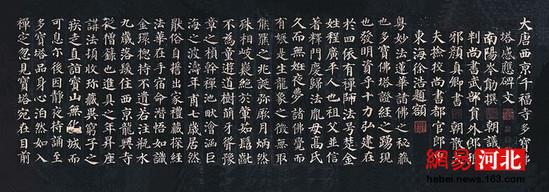 大唐西京千福寺多寶佛
塔感應碑文
南陽岑勛撰 朝議郎
判尚書武部員外郎琅
邪顏真卿書 朝散大
夫檢校尚書都官郎中
東海徐浩題額
粵妙法蓮華諸佛之秘藏
也多寶佛塔證經之踴現
也發明資乎十力弘建在
於四依有禪師法號楚金
姓程廣平人也祖父並信
著釋門慶歸法胤母高氏
久而無妊夜夢諸佛覺而
有娠是生龍象之徵無取
熊羆之兆誕彌厥月炳然
殊相岐嶷絕於葷茹髫齔
不為童遊道樹萌牙聳豫
章之楨幹禪池畎澮涵巨
海之波濤年甫七歲居然
厭俗自誓出家禮藏探經
法華在手宿命潛悟如識
金環總持不遺若注瓶水
九歲落髮住西京龍興寺
從僧籙也進具之年昇座
講法頓收珍藏異窮子之
疾走直詣寶山無化城而
可息爾後因靜夜持誦至
多寶塔品身心泊然如入
禪定忽見寶塔宛在目前
網易河北
hebei.news.163.com